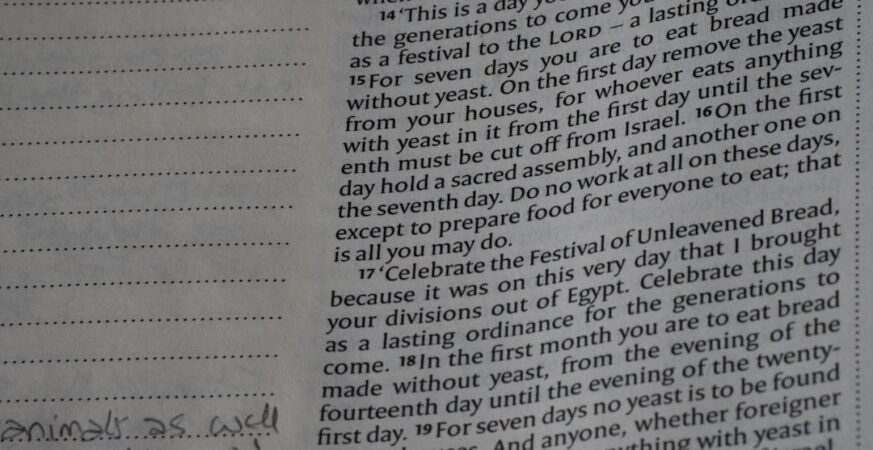 14 'This is a day
the generations to come
as a festival to the LORD – a lasting
15 For seven days you are to eat bread made
without yeast. On the first day remove the yeast
from your houses, for whoever eats anything
with yeast in it from the first day until the sev-
enth must be cut off from Israel. 16 On the first
day hold a sacred assembly, and another one on
the seventh day. Do no work at all on these days,
except to prepare food for everyone to eat; that
is all you may do.
17 'Celebrate the Festival of Unleavened Bread,
because it was on this very day that I brought
your divisions out of Egypt. Celebrate this day
as a lasting ordinance for the generations to
come. 18 In the first month you are to eat bread
made without yeast, from the evening of the
fourteenth day until the evening of the twenty-
first day. 19 For seven days no yeast is to be found
And anyone, whether foreigner
with yeast in
animals as well